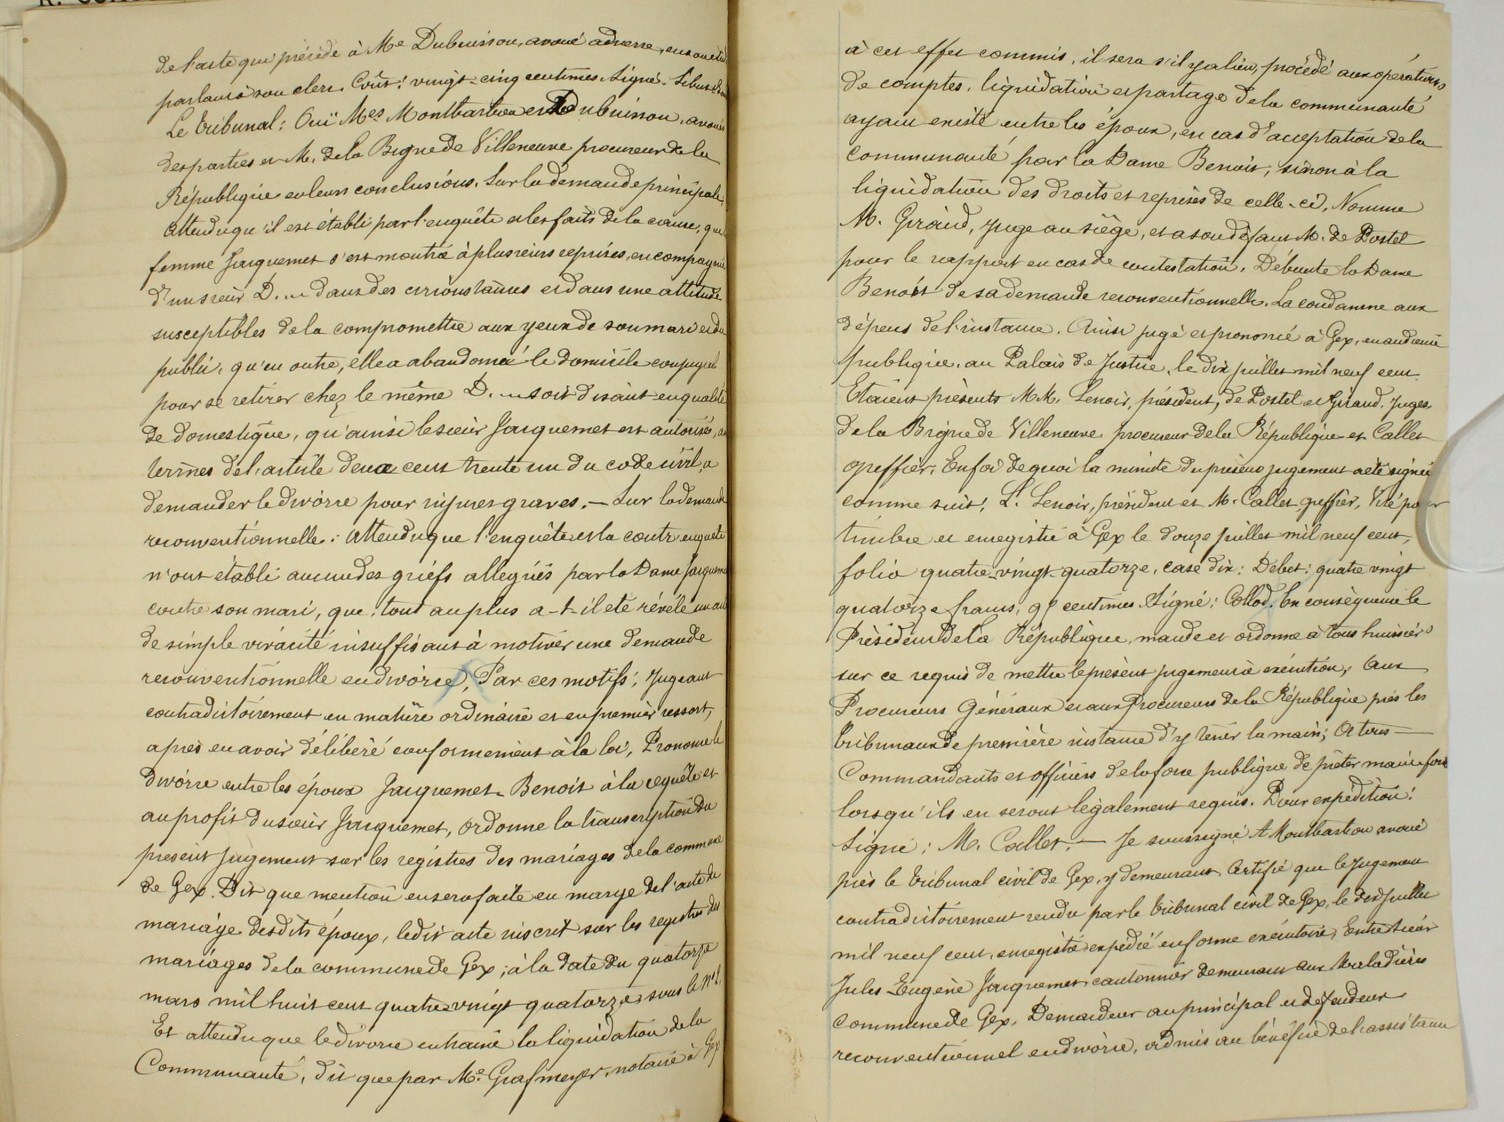 de l'acte qui précède à Me Dubuisson, avoué adverse, en son étude
parlant à son clerc. Coût: vingt-cinq centimes. Signé.
Le tribunal: Ouï Mes Montbarbon et Dubuisson, avoués
des parties et M. de la Bigne de Villeneuve procureur de la
République en leurs conclusions. Sur la demande principale
Attendu qu'il est établi par l'enquête et les faits de la cause, que
femme Jacquemet s'est montrée à plusieurs reprises, en compagnie
d'un sieur D... dans des circonstances et dans une attitude
susceptibles de la compromettre aux yeux de son mari et du
public, qu'en outre, elle a abandonné le domicile conjugal
pour se retirer chez le même D... soit disant en qualité
de domestique, qu'ainsi le sieur Jacquemet est autorisé, aux
termes de l'article deux cent trente un du code civil, à
demander le divorce pour injures graves. — Sur la demande
reconventionnelle: Attendu que l'enquête et la contre enquête
n'ont établi aucun des griefs allégués par la Dame Jacquemet
contre son mari, que tout au plus a-t-il été révélé un acte
de simple vivacité insuffisant à motiver une demande
reconventionnelle en divorce, Par ces motifs; Jugeant
contradictoirement en matière ordinaire et en premier ressort,
après en avoir délibéré conformément à la loi, Prononce le
divorce entre les époux Jacquemet-Benoit à la requête et
au profit du sieur Jacquemet, ordonne la transcription du
présent jugement sur les registres des mariages de la commune
de Gex. Dit que mention en sera faite en marge de l'acte de
mariage desdits époux, ledit acte inscrit sur les registres des
mariages de la commune de Gex; à la date du quatorze
mars mil huit cent quatre-vingt quatorze, sous le No 1.
Et attendu que le divorce entraine la liquidation de la
Communauté, dit que par Me Grafmeyer, notaire à Gex
à cet effet commis, il sera s'il y a lieu, procédé aux opérations
de comptes, liquidation et partage de la communauté
ayant existé entre les époux, en cas d'acceptation de la
communauté par la Dame Benoit, sinon à la
liquidation des droits et reprises de celle-ci, Nomme
M. Giraud, juge au siège, et à son défaut M. de Postel
pour le rapport en cas de contestation. Déboute la Dame
Benoit de sa demande reconventionnelle. La condamne aux
dépens de l'instance. Ainsi jugé et prononcé à Gex, en audience
publique, au Palais de Justice, le dix juillet mil neuf cent
Etaient présents MM. Lenoir, président, de Postel et Giraud, Juges.
De la Bigne de Villeneuve procureur de la République et Callet
greffier. En foi de quoi la minute du présent jugement a été signée
comme suit: L. Lenoir, président et M. Callet greffier, Visé pour
timbre et enregistré à Gex le douze juillet mil neuf cent,
folio quatre-vingt-quatorze, case dix: Débet: quatre vingt
quatorze francs, 90 centimes. Signé: Collod. En conséquence le
Président de la République, mande et ordonne à tous huissiers
sur ce requis de mettre le présent jugement à exécution; Aux
Procureurs Généraux et aux procureurs de la République près les
tribunaux de première instance d'y tenir la main; A tous
Commandants et officiers de la force publique de prêter main forte
lorsqu'ils en seront légalement requis. Pour expédition:
Signé: M. Callet. — Je soussigné A Montbarbon avoué
près le tribunal civil de Gex, y demeurant Certifie que le Jugement
contradictoirement rendu par le tribunal civil de Gex, le dix Juillet
mil neuf cent, enregistré expédié en forme exécutoire, Entre Sieur
Jules Eugène Jacquemet cantonnier demeurant aux Maladières
Commune de Gex, Demandeur au principal et défendeur
reconventionnel en divorce, admis au bénéfice de l'assistance